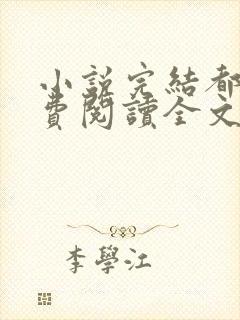 小說完結都
費閱讀全文
李學江